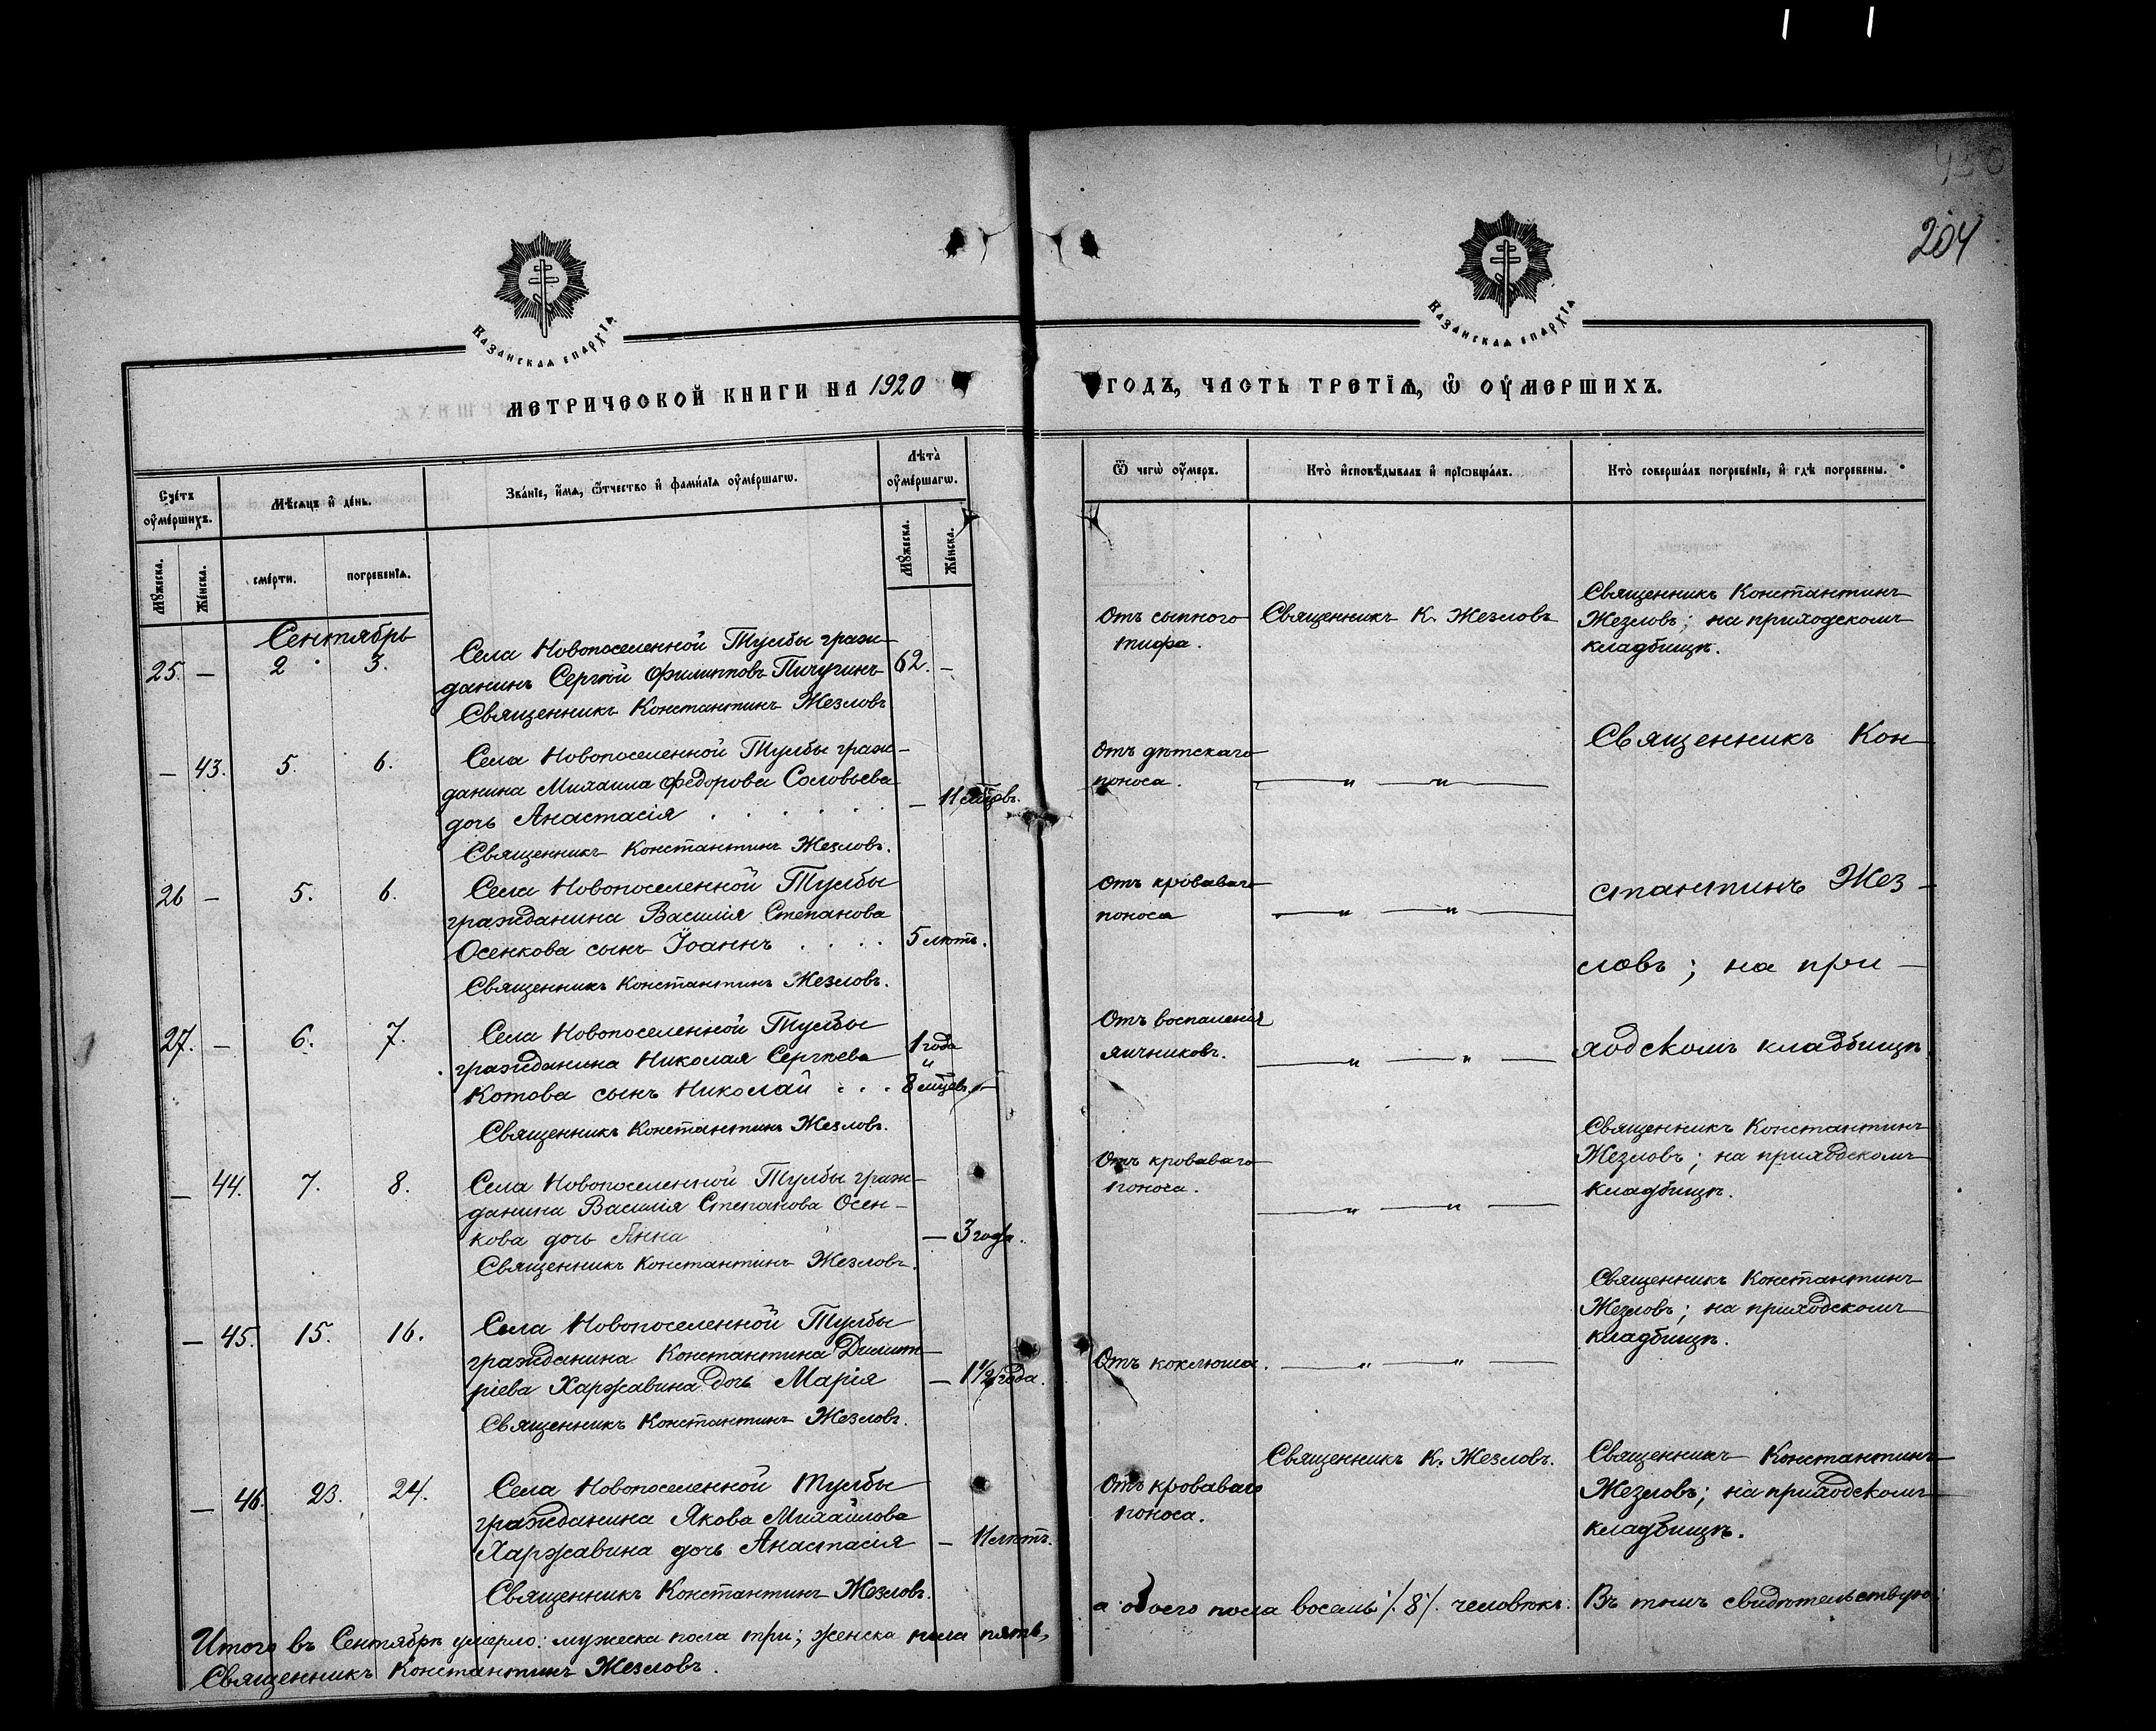 430
204
Казанская епархїѧ
Казанская епархїѧ
МЕТРИЧЕСКОЙ КНИГИ НА 1920
ГОДЪ, ЧАСТЬ ТРЕТЇѦ, Ѿ ОУМЕРШИХЪ.
Счетъ оумершихъ.
Мѣсяцъ и день.
Званїе, имѧ, ѿтчество и фамилїѧ оумершагѡ.
Лѣта оумершагѡ.
Ѿ чегѡ оумеръ.
Кто исповѣдывалъ и прїѡбщалъ.
Кто совершалъ погребенїе, и гдѣ погребены.
Мꙋжеска.
Женска.
смерти.
погребенїѧ.
Мꙋжеска.
Женска.
Сентябрь
25. — 2 3. Села Новопоселенной Тулбы граж-
данинъ Сергѣй Филипповъ Пичугинъ 62. —
Священникъ Константинъ Жезловъ
Отъ сыпного
тифа.
Священникъ К. Жезловъ
Священникъ Константинъ
Жезловъ; на приходскомъ
кладбищѣ.
— 43. 5. 6. Села Новопоселенной Тулбы граж-
данина Михаила Федорова Соловьева
дочь Анастасія . . . . . — 11 мѣцовъ.
Священникъ Константинъ Жезловъ.
Отъ дѣтскаго
поноса.
— „ — „ —
Священникъ Кон-
26 — 5. 6. Села Новопоселенной Тулбы
гражданина Василія Степанова
Осенкова сынъ Іоаннъ . . . . 5 лѣтъ.
Священникъ Константинъ Жезловъ.
Отъ кроваваго
поноса
— „ — „ —
стантинъ Жез-
ловъ; на при-
27. — 6. 7. Села Новопоселенной Тулбы
гражданина Николая Сергѣева 1 года
Котова сынъ Николай . . . 8 мѣцевъ. —
Священникъ Константинъ Жезловъ.
Отъ воспаленія
яичниковъ.
— „ — „ —
ходскомъ кладбищѣ.
— 44. 7. 8. Села Новопоселенной Тулбы граж-
данина Василія Степанова Осен-
кова дочь Анна — 3 года.
Священникъ Константинъ Жезловъ.
Отъ кроваваго
поноса.
— „ — „ —
Священникъ Константинъ
Жезловъ; на приходскомъ
кладбищѣ.
— 45. 15. 16. Села Новопоселенной Тулбы
гражданина Константина Димит-
ріева Харжавина дочь Марія — 1 1/2 года.
Священникъ Константинъ Жезловъ.
Отъ коклюша.
— „ — „ —
Священникъ Константинъ
Жезловъ; на приходскомъ
кладбищѣ.
— 46. 23. 24. Села Новопоселенной Тулбы
гражданина Якова Михайлова
Харжавина дочь Анастасія — 11 лѣтъ.
Священникъ Константинъ Жезловъ.
Отъ кроваваго
поноса.
Священникъ К. Жезловъ.
Священникъ Константинъ
Жезловъ; на приходскомъ
кладбищѣ.
Итого въ Сентябрѣ умерло: мужеска пола три; женска пола пять,
а обоего пола восемь /.8/. человѣкъ. Въ томъ свидѣтельствую:
Священникъ Константинъ Жезловъ.